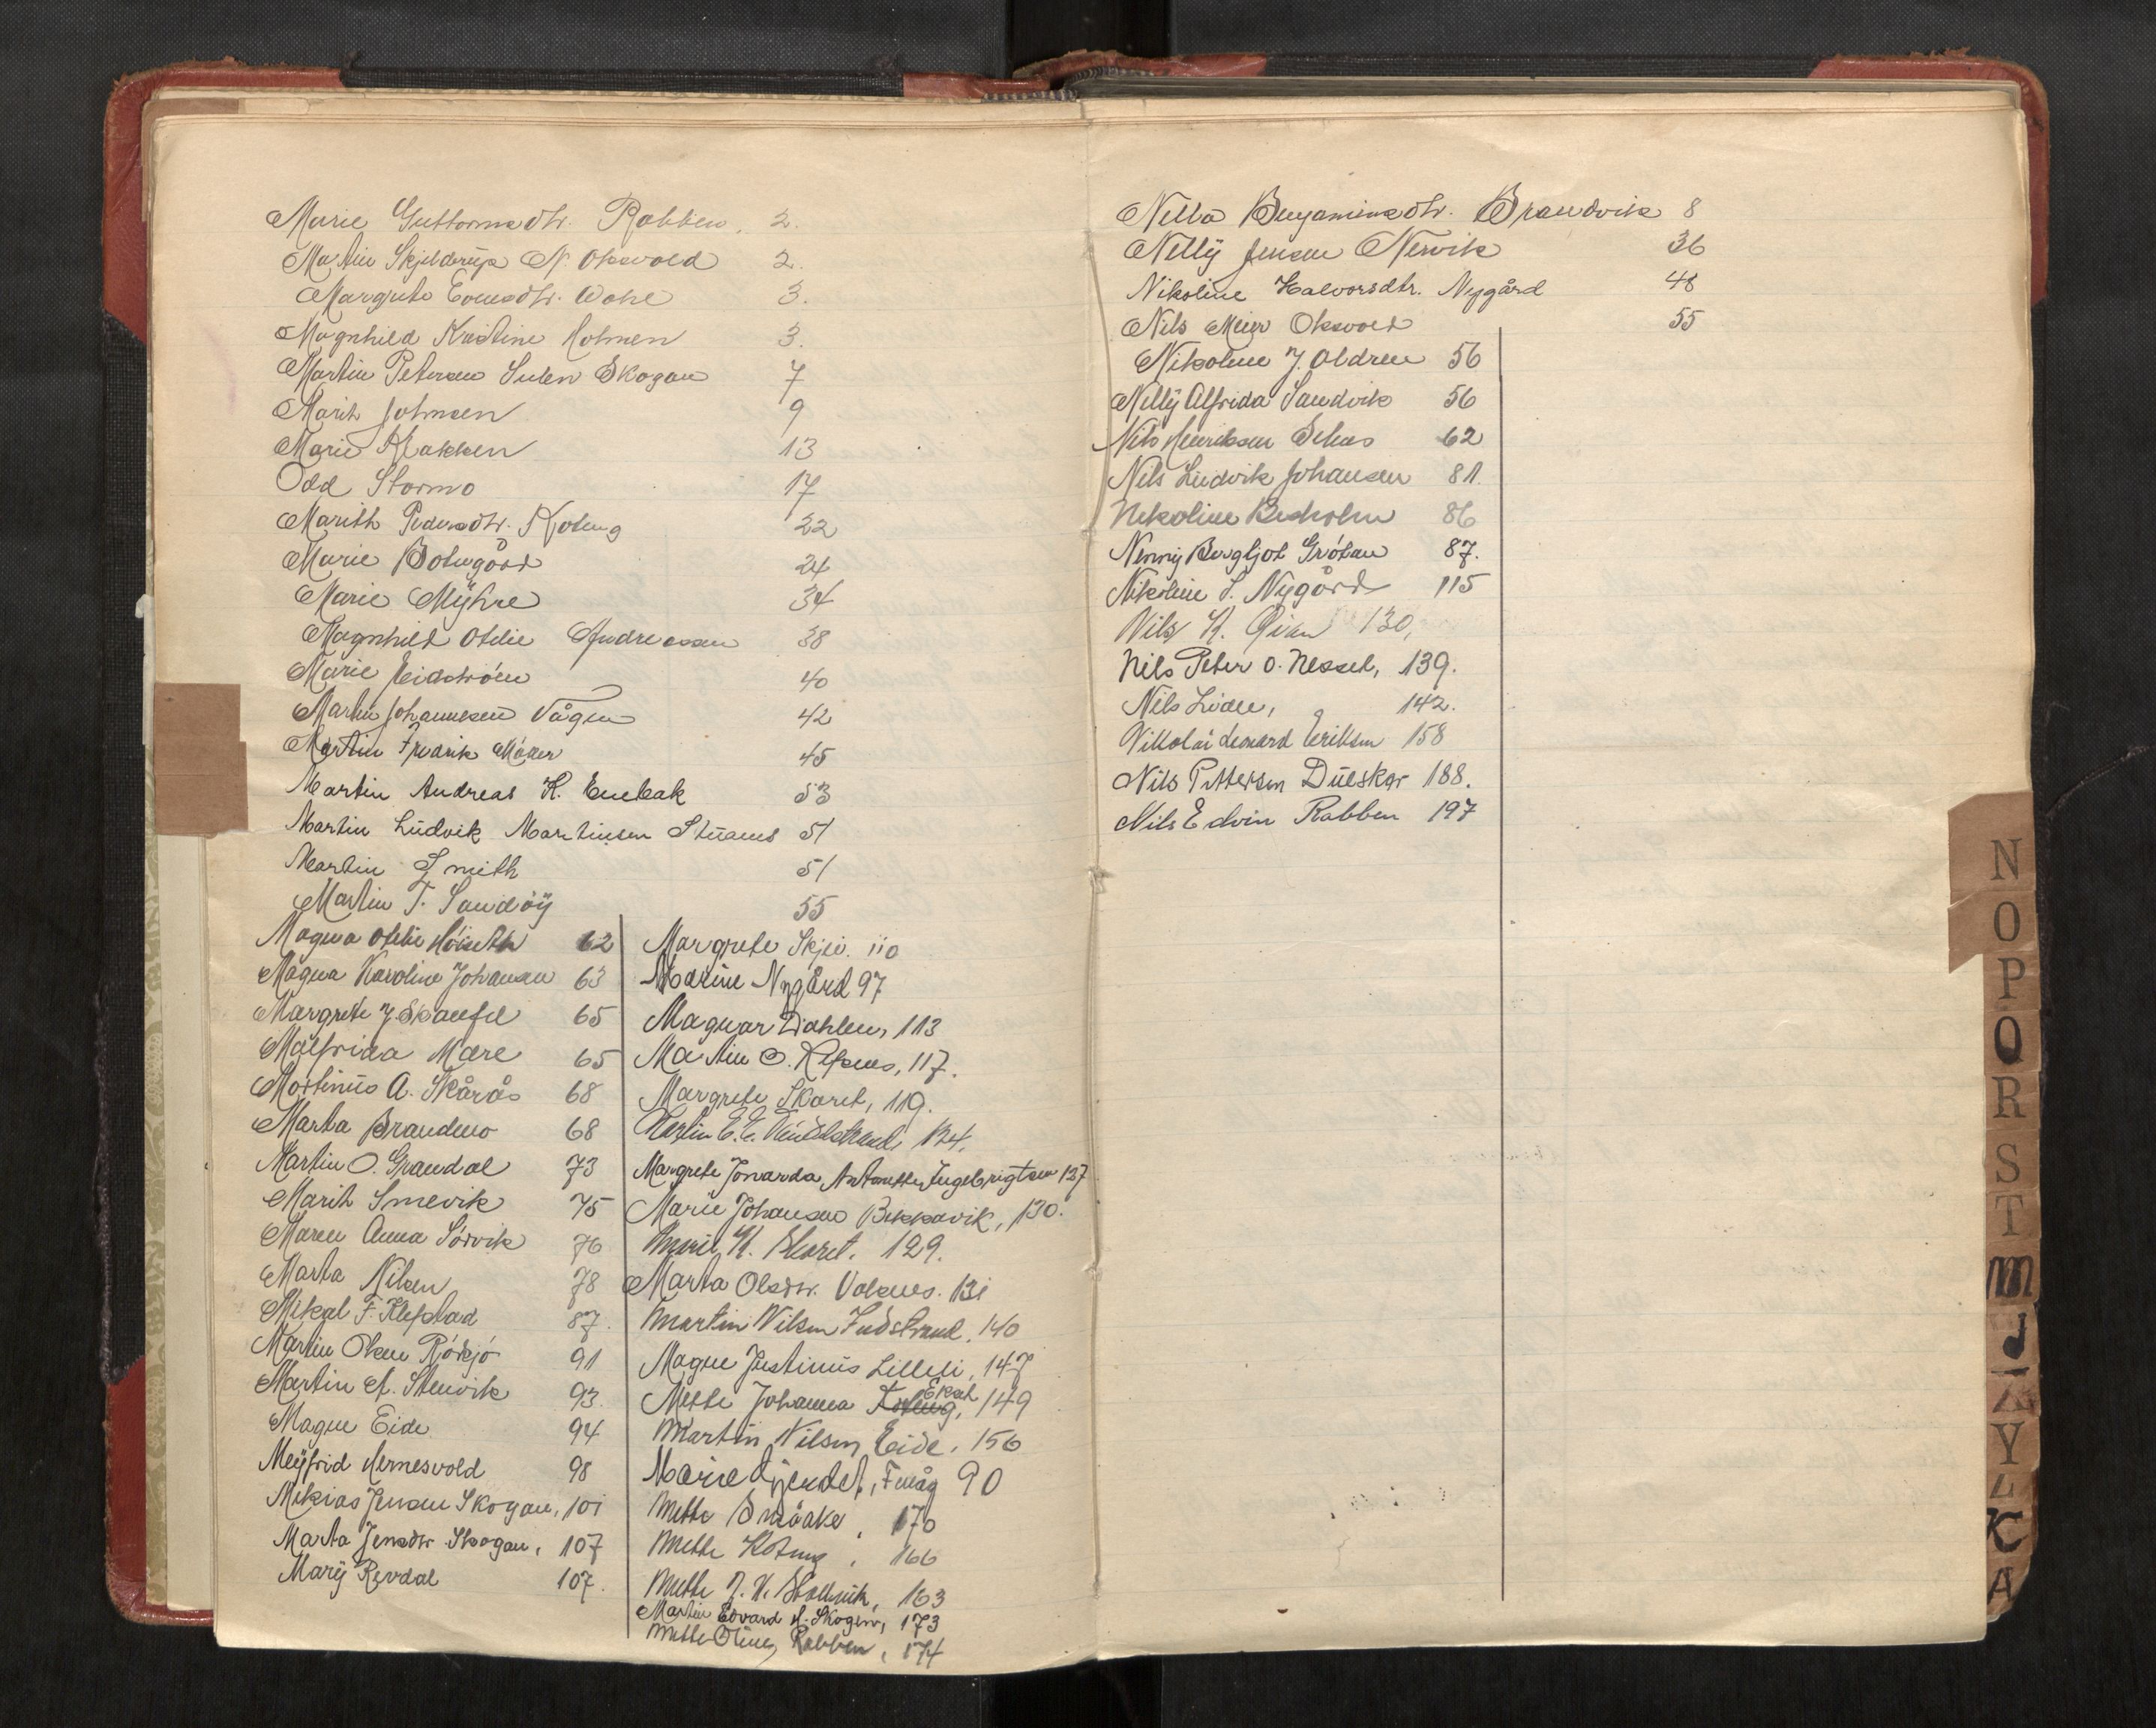 Marie Guttormsdtr. Rabben. 2.
Martin Skjelderup N. Oksvold 2.
Margrete Evensdtr. 3.
Magnhild Kristine Holmen 3.
Martin Petersen Skogan 7
Marit Johnsen 9
Marie Bakken 13
Odd Stormo 17
Marith Pedersdtr. Koteng 22
Marie Botngård 24
Marie Myhre 34
Magnhild Otelie Andreassen 38
Marie Eidstrøm 40
Martin Johannesen Vågen 42
Martin Fredrik 45
Martin Andreas K. Enebak 53
Martin Ludvik Martinsen 51
Martin Smith 51
Martin T. Sandøy 55
Magna Otelie 62
Magna Karoline Johansen 63
Margrete J. Skaufel 65
Målfrida Mære 65
Mortinus A. Skårås 68
Marta Brandmo 68
Martin O. Grandal 73
Marit Smevik 75
Maren Anna Sørvik 76
Marta Nilsen 78
Mikal F. Klefstad 87.
Martin Olsen Rödsjö 91
Martin A. Stenvik 93.
Magne Eide 94
Meyfrid Hernesvold 98
Mekias Jensen Skogan, 101
Marta Jensdtr Skogan, 107
Mary Revdal 107.
Margrete Skjei. 110
Marine Nygård 97
Magnar Dahlen, 113
Martin O. Refsnes, 117.
Margrete Skaret, 119.
Martin E. E. 124.
Margrete Jonarda Antonette Ingebrigtsen 127
Marie Johansen Bekkavik, 130.
Marit K. Skaret. 129.
Marta Olsdtr. Valsnes. 131
Martin Nilsen Indstrand. 140
Magne Justinus Lilleli, 147
Ekset
Mette Johanna Koteng, 149
Martin Nilsen Eide. 156
Marie 90
Mette 170
Mette Koteng, 166
Mette J. 163
Martin Edvard H. Skogen, 173
Mette Oline Rabben, 174
Nella Benjaminsdtr. Brandvik 8
Nelly Jensen Nervik 36
Nikoline Halvorsdtr. Nygård 48
Nils Meier Oksvold 55
Nikoline J. Aldren 56
Nelly Alfrida Sandvik 56
Nils Henriksen Selnes 62
Nils Ludvik Johansen 81.
Nekoline Beskolen 86
Nenny Bergljot Grötan 87.
Nikoline S. Nygård 115
Nils K. 130,
Nils Peter O. Nesset, 139.
Nils Liden, 142.
Nikolai Leonard Eriksen 158
Nils Pettersen Dülskar 188.
Nils Edvin Rabben 197
N
O
P
Q
R
S
T
M
J
Y
L
K
A